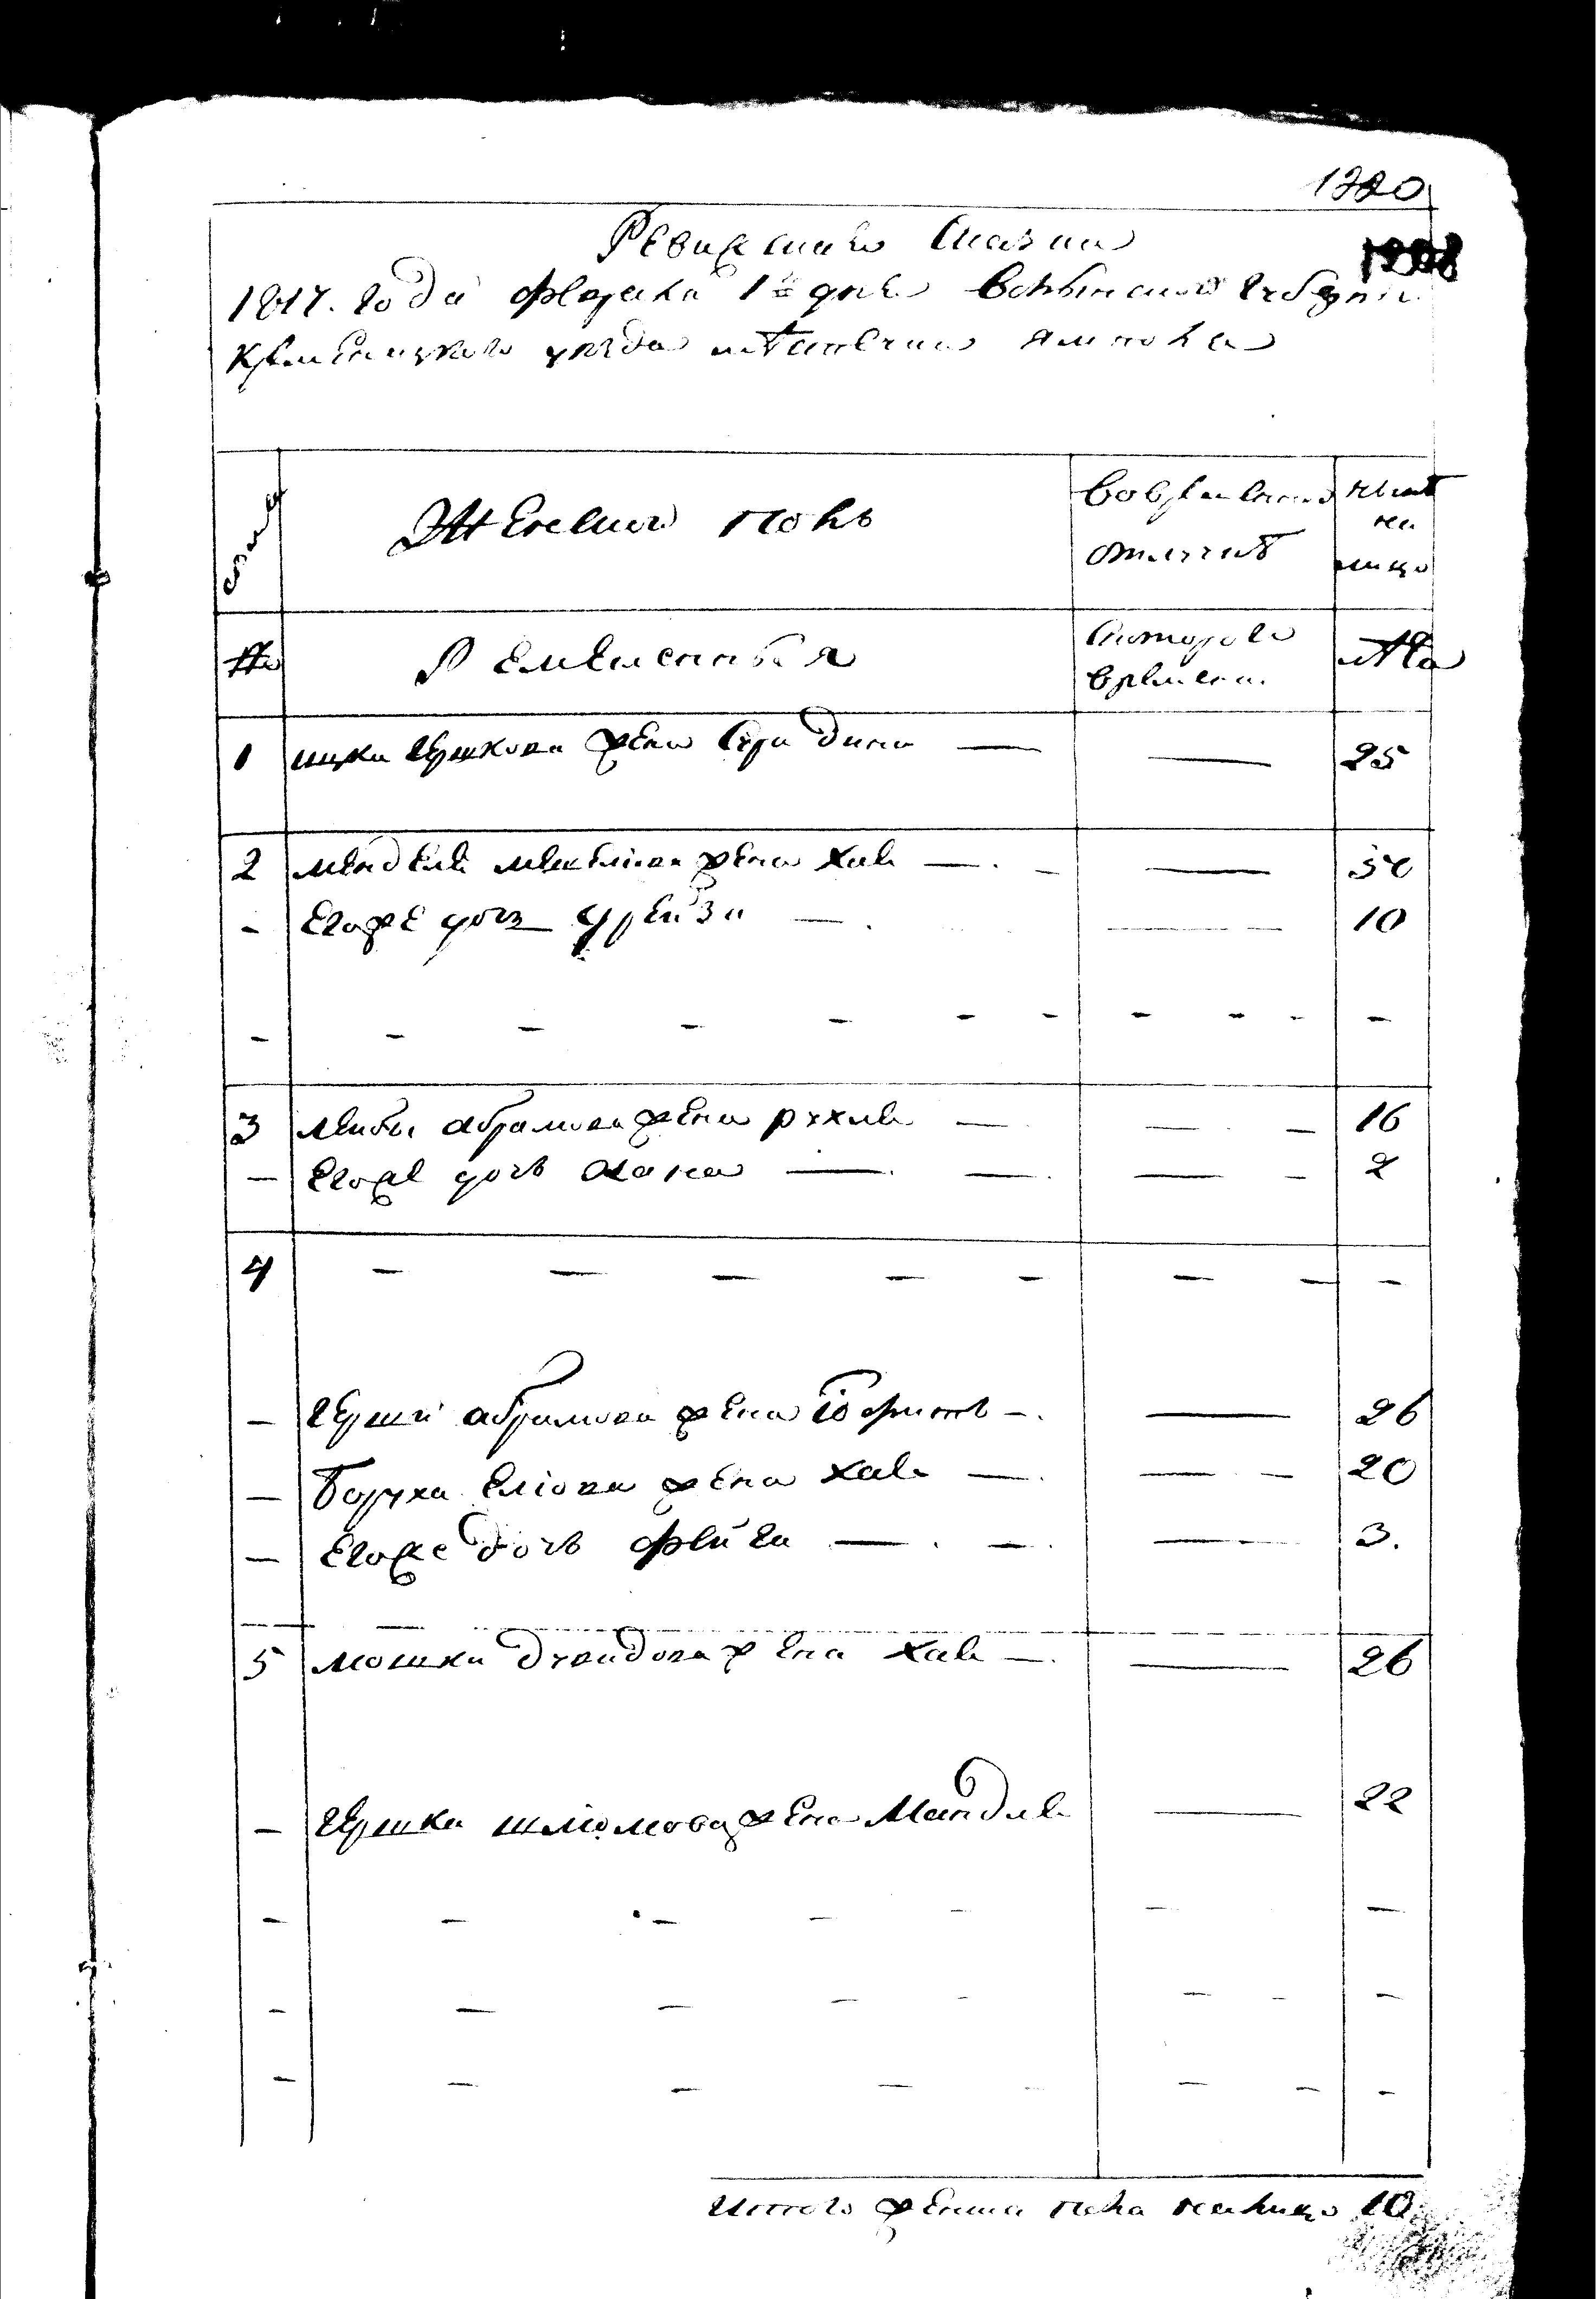 1220
Ревижская Сказка
1817. года февраля 1го дня Волынской Губернии
Кременецкого уезда местечка Ямполя
Семьи
Женский полъ
Во временной
отлучке
Ныне
на
лицо
№
Ремесленныя
Которого
времени
лета
1 ицки Гершкова жена Сура дина — — 25
2 мендель жена хая — — 50
- Егоже дочь фрейда — — 10
- - - - - - - - - - -
3 лейбы абрамова жена рухля — — 16
— Егоже дочь хана — — 2
4 — — — — — — — -
— Герши абрамова жена — — 26
— Боруха Еліова жена хая — — 20
— Егоже дочь фейга — — 3.
5 мошки давидова жена хая — — 26
— Гершка шлиомова жена Мандля — 22
- - - - - - -
- - - - - - -
- - - - - - -
Итого женска пола налицо 10